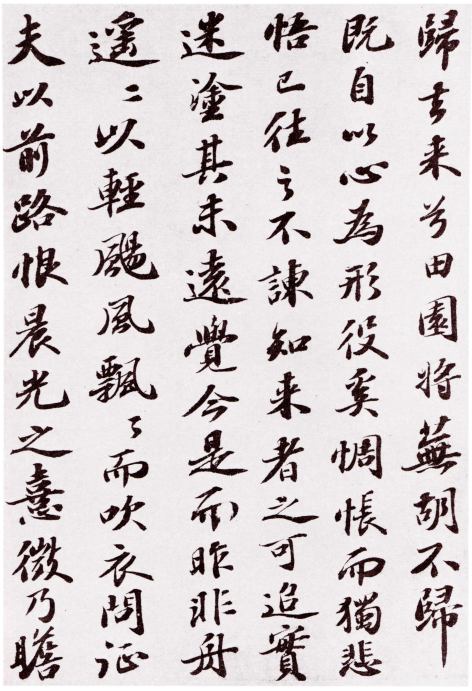 歸去来兮田園将蕪胡不歸
既自以心為形役奚惆悵而獨悲
悟已往之不諫知来者之可追實
迷塗其未遠覺今是而昨非舟
遥〻以輕颺風飄〻而吹衣問征
夫以前路恨晨光之熹微乃瞻